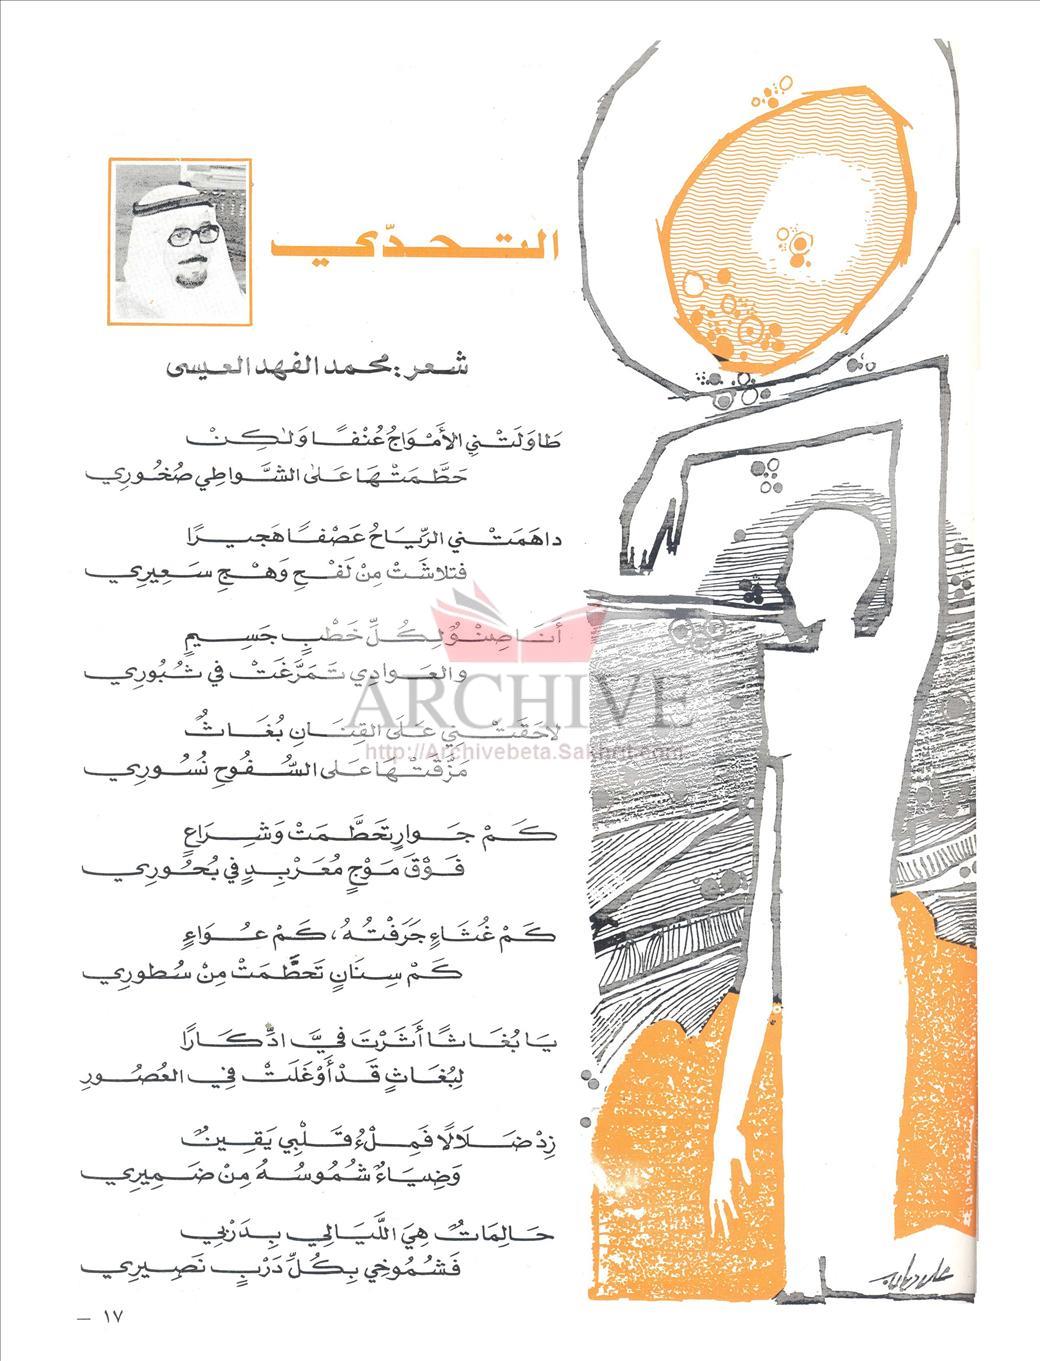 التحدّي
شعر: محمد الفهد العيسى
طَاوَلَتْني الأَمْوَاجُ عُنْفًا وَلكِنْ
حَطَّمَتْهَا عَلى الشَّواطِي صُخُورِي
داهَمَتْني الرِّيَاحُ عَصْفًا هَجيرًا
فتلاشَتْ مِنْ لَفْحِ وَهْجِ سَعِيرِي
أَنَا صِنْوٌ لِكُلِّ خَطْبٍ جَسِيمٍ
والعَوادِي تَمَرَّغَتْ في ثُبُورِي
لاحَقَتْني عَلَى القِنَانِ بُغَاثٌ
مَزَّقَتْهَا عَلى السُّفُوحِ نُسُورِي
كَمْ جَوارٍ تَحَطَّمَتْ وَشِرَاعٍ
فَوْقَ مَوْجٍ مُعَرْبِدٍ في بُحُورِي
كَمْ غُثَاءٍ جَرَفْتُهُ، كَمْ عُوَاءٍ
كَمْ سِنَانٍ تَحَطَّمَتْ مِنْ سُطورِي
يَا بُغَاثًا أَثَرْتَ فيَّ ادِّكَارًا
لِبُغَاثٍ قَدْ أَوْغَلَتْ فِي العُصُورِ
زِدْ ضَلَالًا فَمِلْءُ قَلْبِي يَقِينٌ
وَضِيَاءٌ شُمُوسُهُ مِنْ ضَمِيرِي
حَالِمَاتٌ هِيَ اللَّيَالِي بِدَرْبِي
فَشُمُوخِي بِكُلِّ دَرْبٍ نَصِيرِي
ARCHIVE
http://Archivebeta.Sakhrit.com
١٧ —